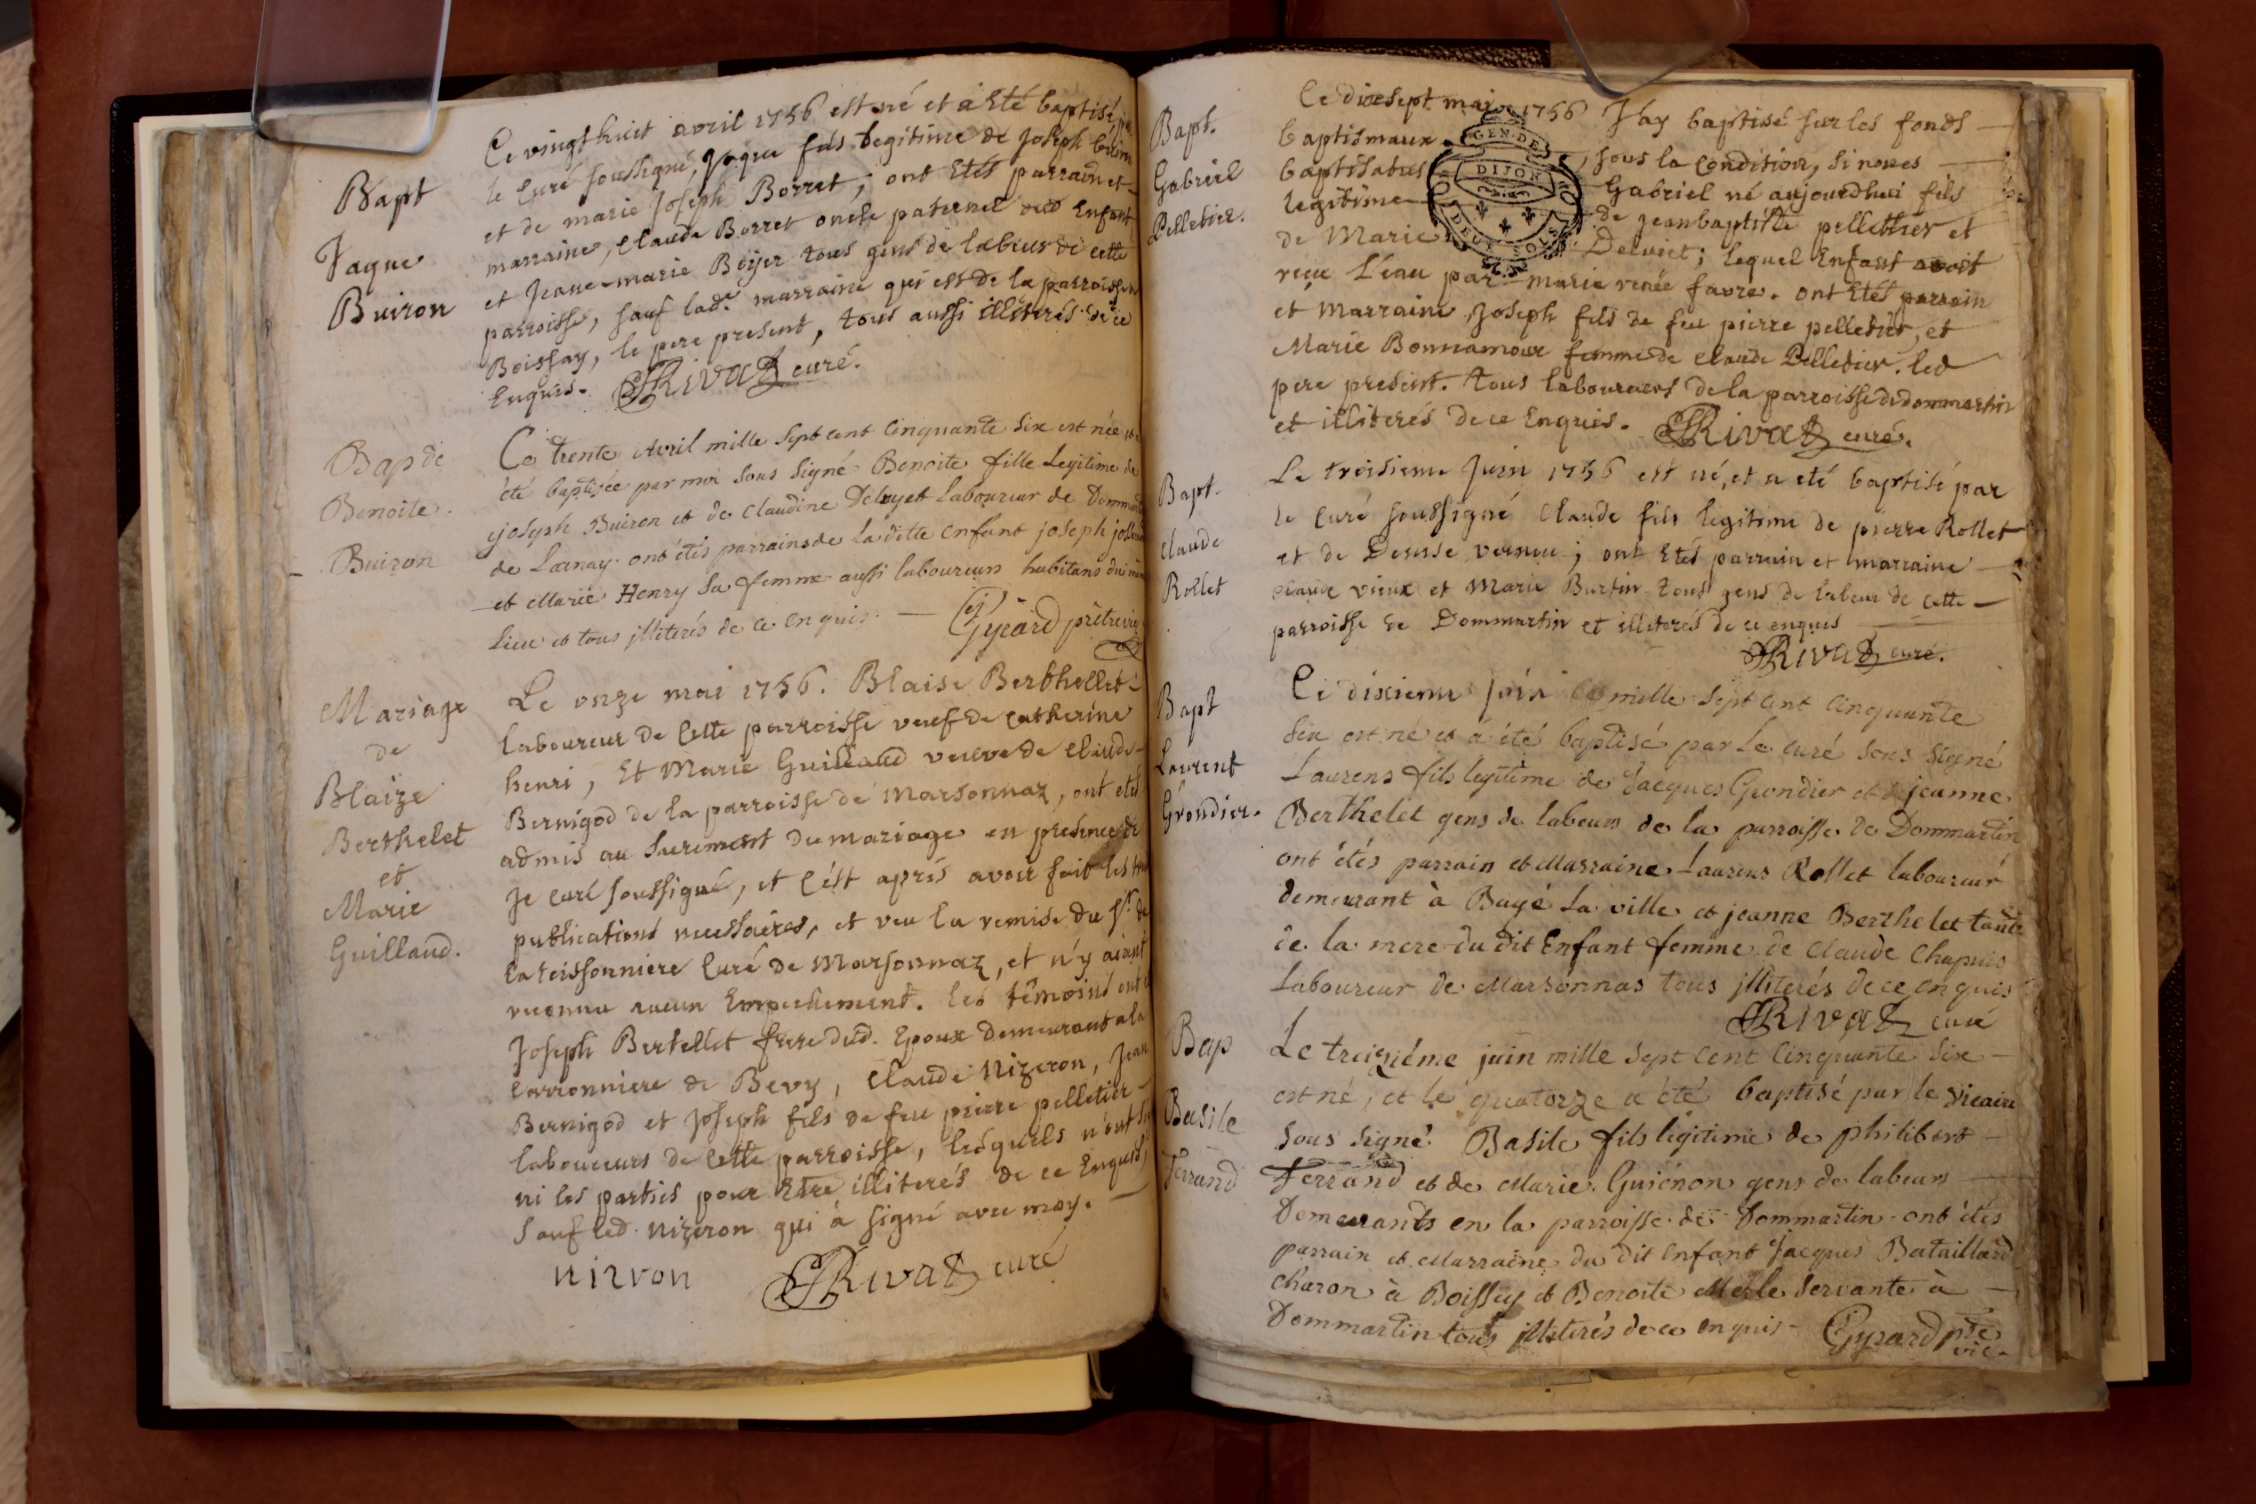 Bapt
Jaque
Buiron
Ce vingt huit avril 1756 est né et a Eté baptisé par
le Curé soussigné, Jaque fils legitime de Joseph
et de marie Joseph Borret; ont Etés parrain et
marraine, Claude Borret oncle paternel dud Enfant
et Jeanne-marie Boyer tous gens de labeur de cette
parroisse, sauf lad.e marraine qui est de la parroisse
Boissay, le pere present, tous aussi illiterés de ce
Enquis. Rivat curé.
Bap de
Benoite
Buiron
Ce trente Avril mille sept cent cinquante six est née et
été baptisée par moi sous signé Benoite fille Legitime de
joseph Buiron et de Claudine Deluyet Laboureur de
de Loenay ont étés parrains de la ditte enfant joseph
et Marie Henry sa femme aussi laboureurs habitans du
Lieu et tous jlliterés de ce enquis. Gyrard prêtre vic
Mariage
de
Blaize
Berthelet
et
Marie
Guillaud.
Le onze mai 1756. Blaise Berthellet
Laboureur de Cette parroisse veuf de Catherine
henri, Et Marie Guillaud veuve de Claude
Bernigod de la parroisse de Marsonnaz, ont etés
admis au Surement du mariage en presence de
Je curé soussigné, et C'est aprés avoir fait les
publications necessaires, et veu la remise du Sr. de
la teissonniere Curé de Marsonnaz, et n'y aiant
reconnu aucun Empechement. les têmoins ont
Joseph Bertellet frere dud. Epoux demeurant a la
Carronniere de Bevy, Claude Nizeron, Jean
Bernigod et Joseph fils de feu pierre pelletier
laboureurs de Cette parroisse, lesquels n'ont
ni les parties pour Etre illiterés de ce Enquis
Sauf led. Nizeron qui à signé avec moy.
Nizron Rivat curé
Bapt.
Gabriel
Pelletier.
Ce dix sept mai 1756 J'ay baptisé sur les fonds
baptismaux, sous la condition, si nones
baptisatus Gabriel né aujourdhui fils
legitime de Jean baptiste pellettier et
de Marie Deluiet; lequel Enfant avoit
reçu L'eau par marie renée favre. ont Etés parrain
et Marraine, Joseph fils de feu pierre pelletier, et
Marie Bonnamour femme de Claude Pelletier. led
pere present. tous laboureurs de la parroisse de dommartin
et illiterés de ce Enquis. Rivat curé.
GEN. DE
DIJON
DEUX SOLS
Bapt.
Claude
Rollet
Le troisieme Juin 1756 est né, et a eté baptisé par
le Curé soussigné Claude fils legitime de pierre Rollet
et de Denisse verneu; ont Etés parrain et marraine
Claude vieux et Marie Burtin tous gens de labeur de Cette
parroisse de Dommartin et illiterés de ce enquis
Rivat curé.
Bapt
Laurent
Grondier.
Ce dixieme Juin mille sept cent cinquante
Six est né et a été baptisé par Le curé sous signé
Laurens fils legitime de Jacques Grondier et de jeanne
Berthelet gens de labeurs de la parroisse de Dommartin
ont étés parrain et Marraine Laurens Rollet laboureur
demeurant à Bagé La ville et jeanne Berthelet tante
de la mere du dit Enfant femme de Claude Chapuis
Laboureur de Marsonnas tous jlliterés de ce enquis
Rivat curé
Bap
Basile
Ferrand
Le treizième juin mille sept cent cinquante six
est né, et le quatorze a été baptisé par le vicaire
Sous signé Basile fils legitime de philibert
Ferrand et de Marie Guiénon gens de labeurs
Demeurants en la parroisse de Dommartin ont étés
parrain et Marraine du dit enfant Jacques Bataillard
charon à Boissey et Benoite Merle servante à
Dommartin tous jlliterés de ce enquis Gyrard ptre
vic.